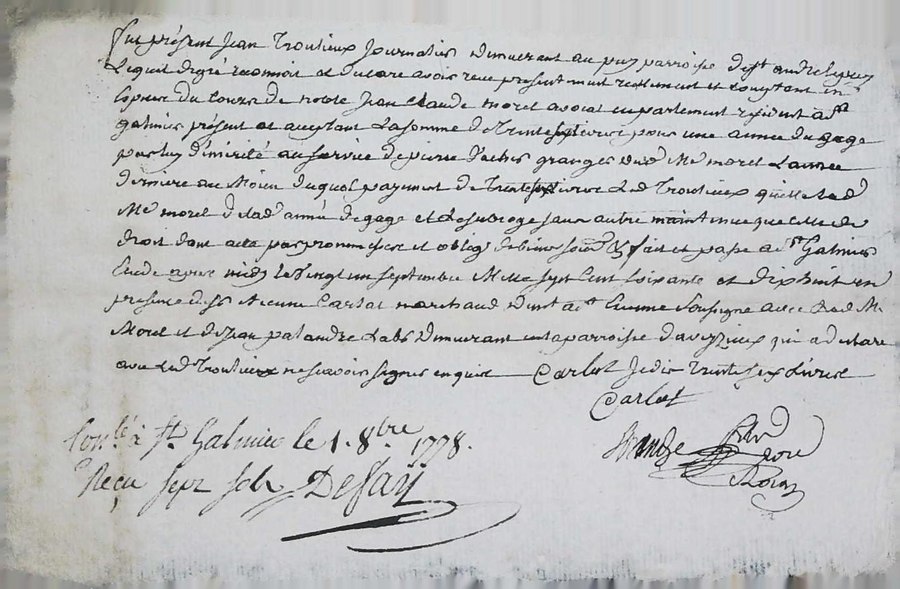 fut présent Jean Troulieux Journalier demeurant au puy parroisse de st andre le puy
Lequel degré reconnoit et declare avoir receu presentement reellement et comptant en
Especes du cours de noble Jean Claude morel avocat en parlement résident a st
galmier présent et acceptant La somme de Trente six livres pour une année du gage
par luy mérité au service de pierre granges dud Me morel L'année
derniere au Moien duquel payement de Trente six livres Led Troulieux quitte led
Me morel de lad année de gage et Le subroge sans autre maintenue que celle de
droit dont acte par promesses et oblig de biens soum & fait et passé a st Galmier
Etude apres midy le vingt un septembre Mille sept Cent soixante et dix huit en
presence de sr Etienne Carlat marchand dud st Etienne soussigné avec led Me
Morel et de Jean palandre Labr demeurant en la parroisse d'aveyzieux qui a declaré
avec Led Troulieux ne scavoir signer enquis Carlat Je dis trente six Livres
Carlat
Conlé à St. Galmier le 1. 8bre 1778.
Reçu sept sols Defaÿ